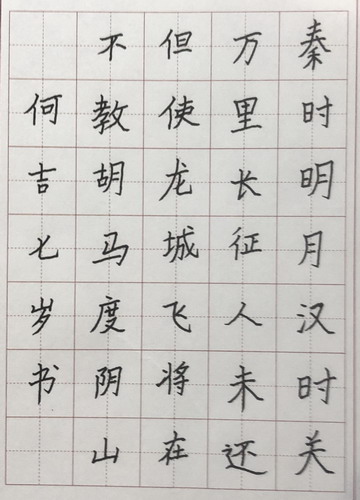 秦时明月汉时关
万里长征人未还
但使龙城飞将在
不教胡马度阴山
何吉七岁书